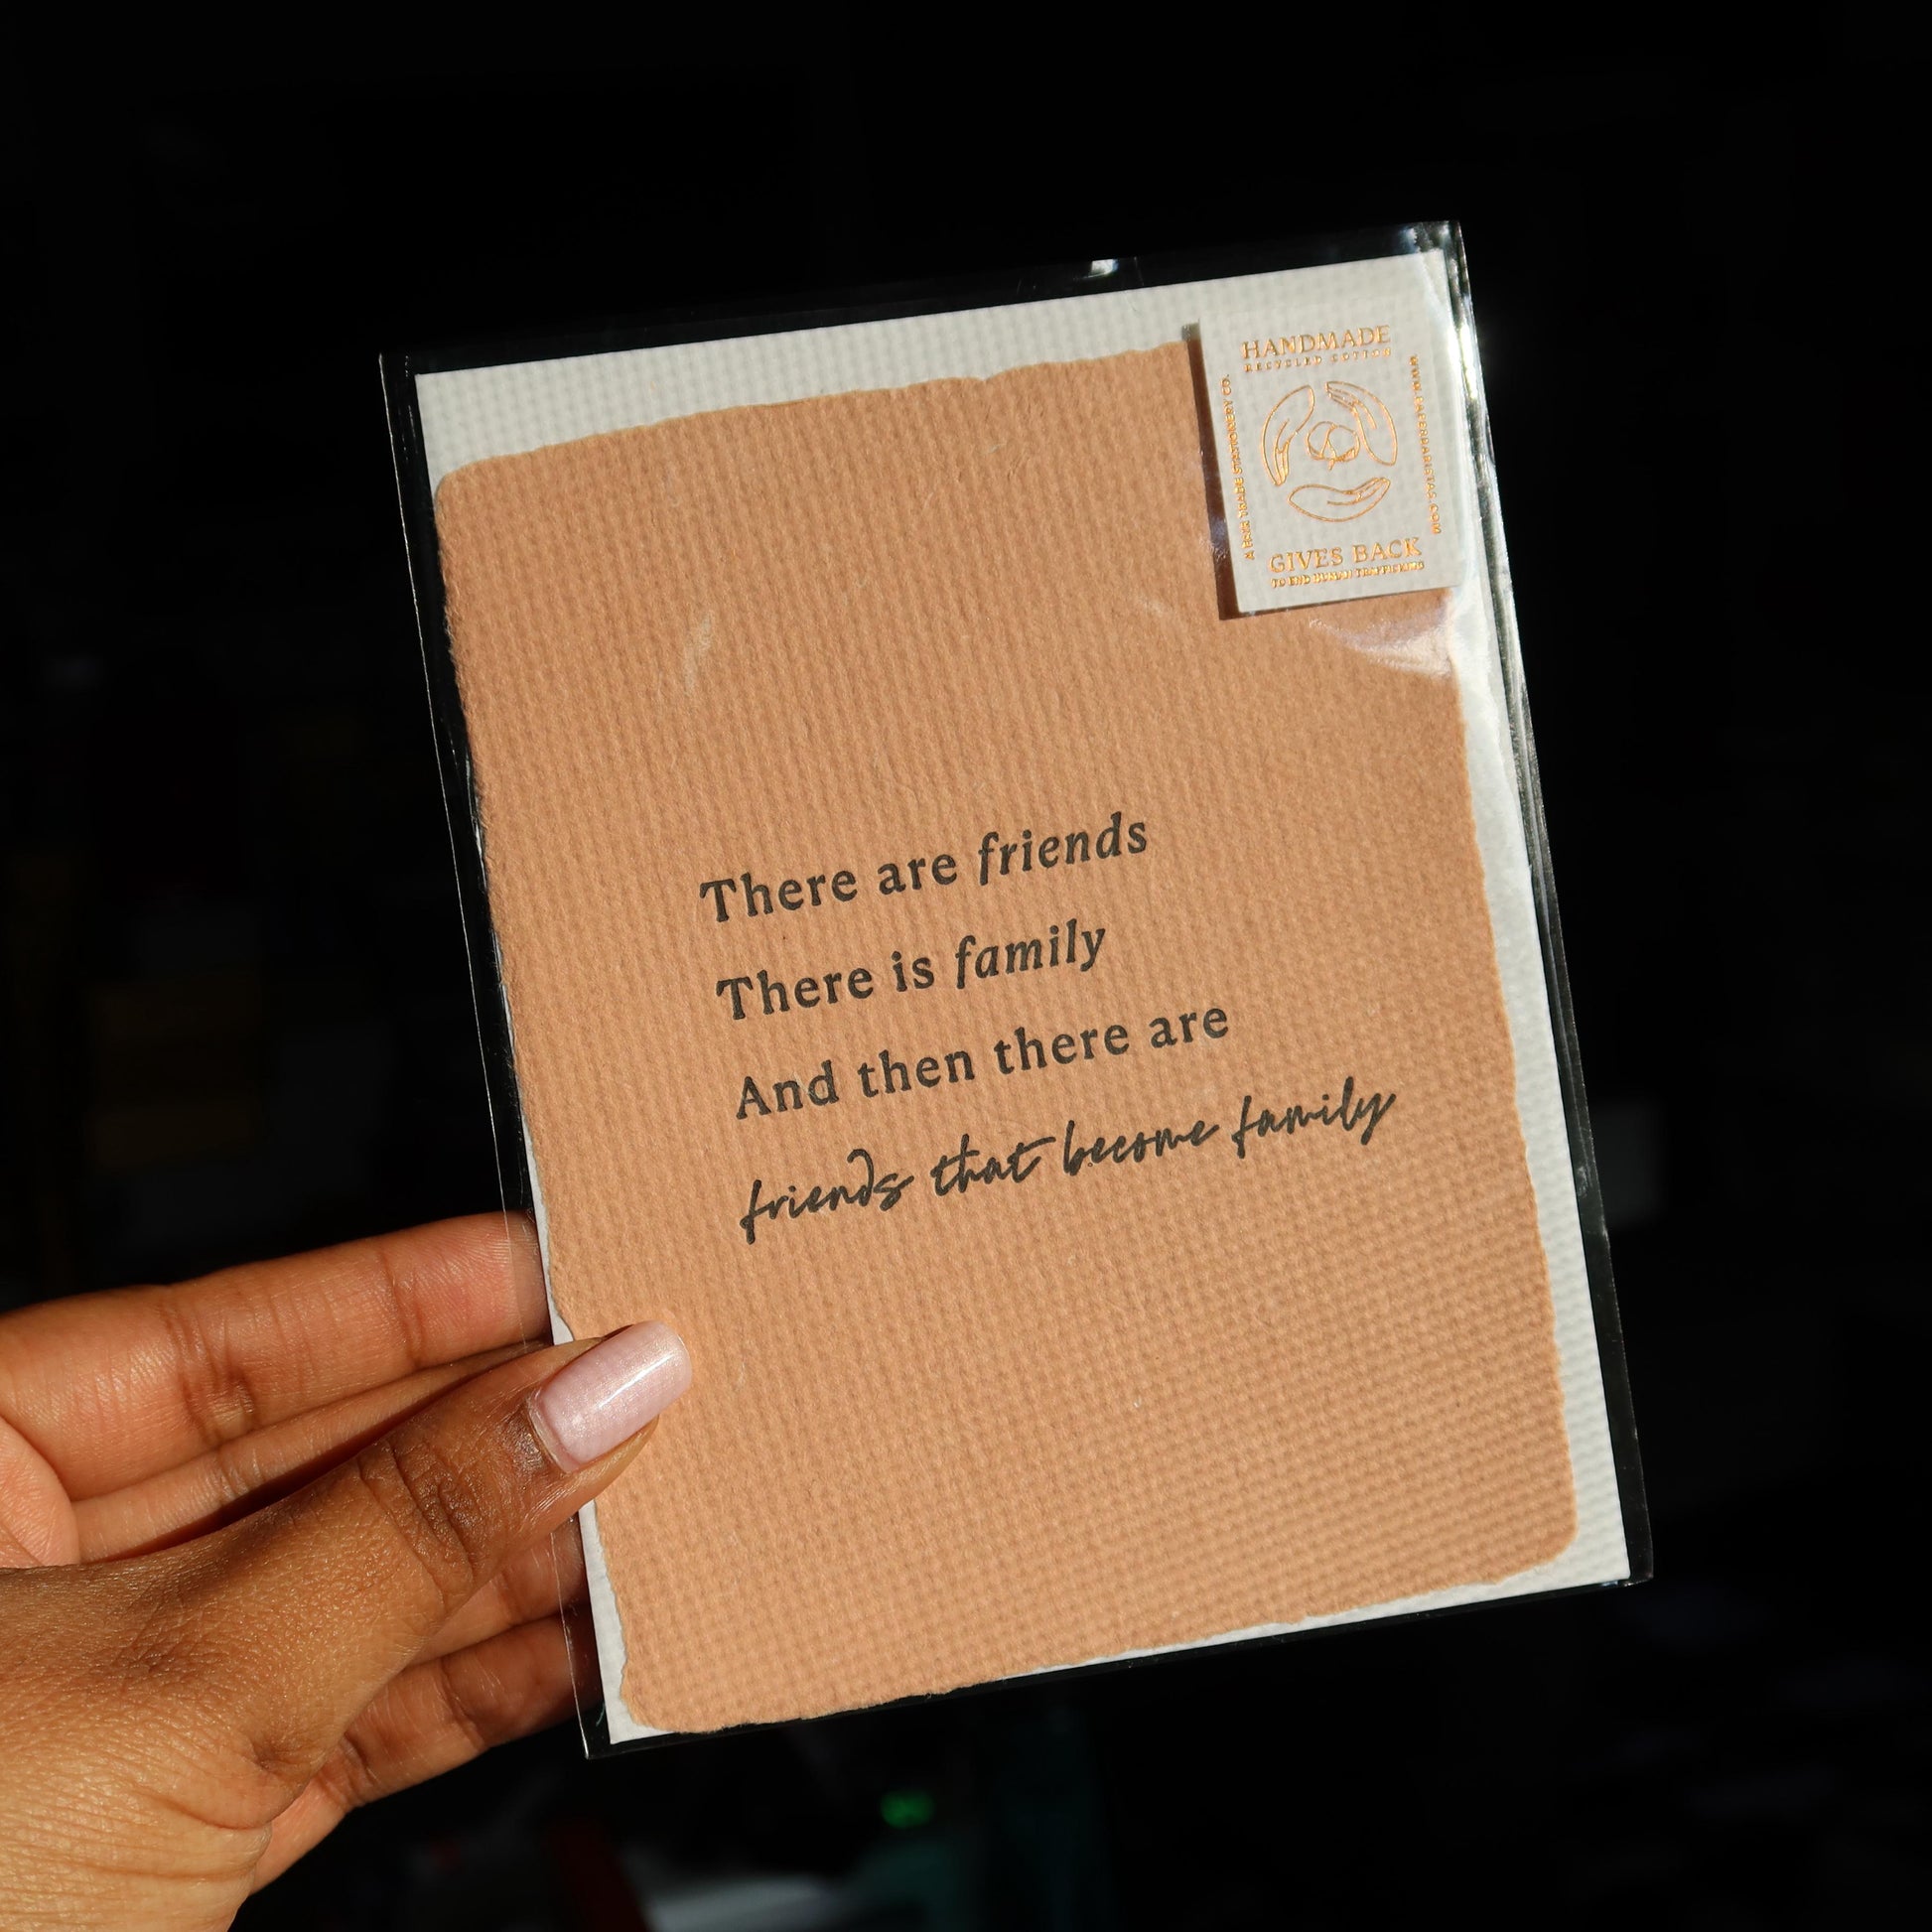 HANDMADE
RECYCLED COTTON
A FAIR TRADE STATIONERY CO.
GIVES BACK
TO END HUMAN TRAFFICKING
There are friends
There is family
And then there are
friends that become family